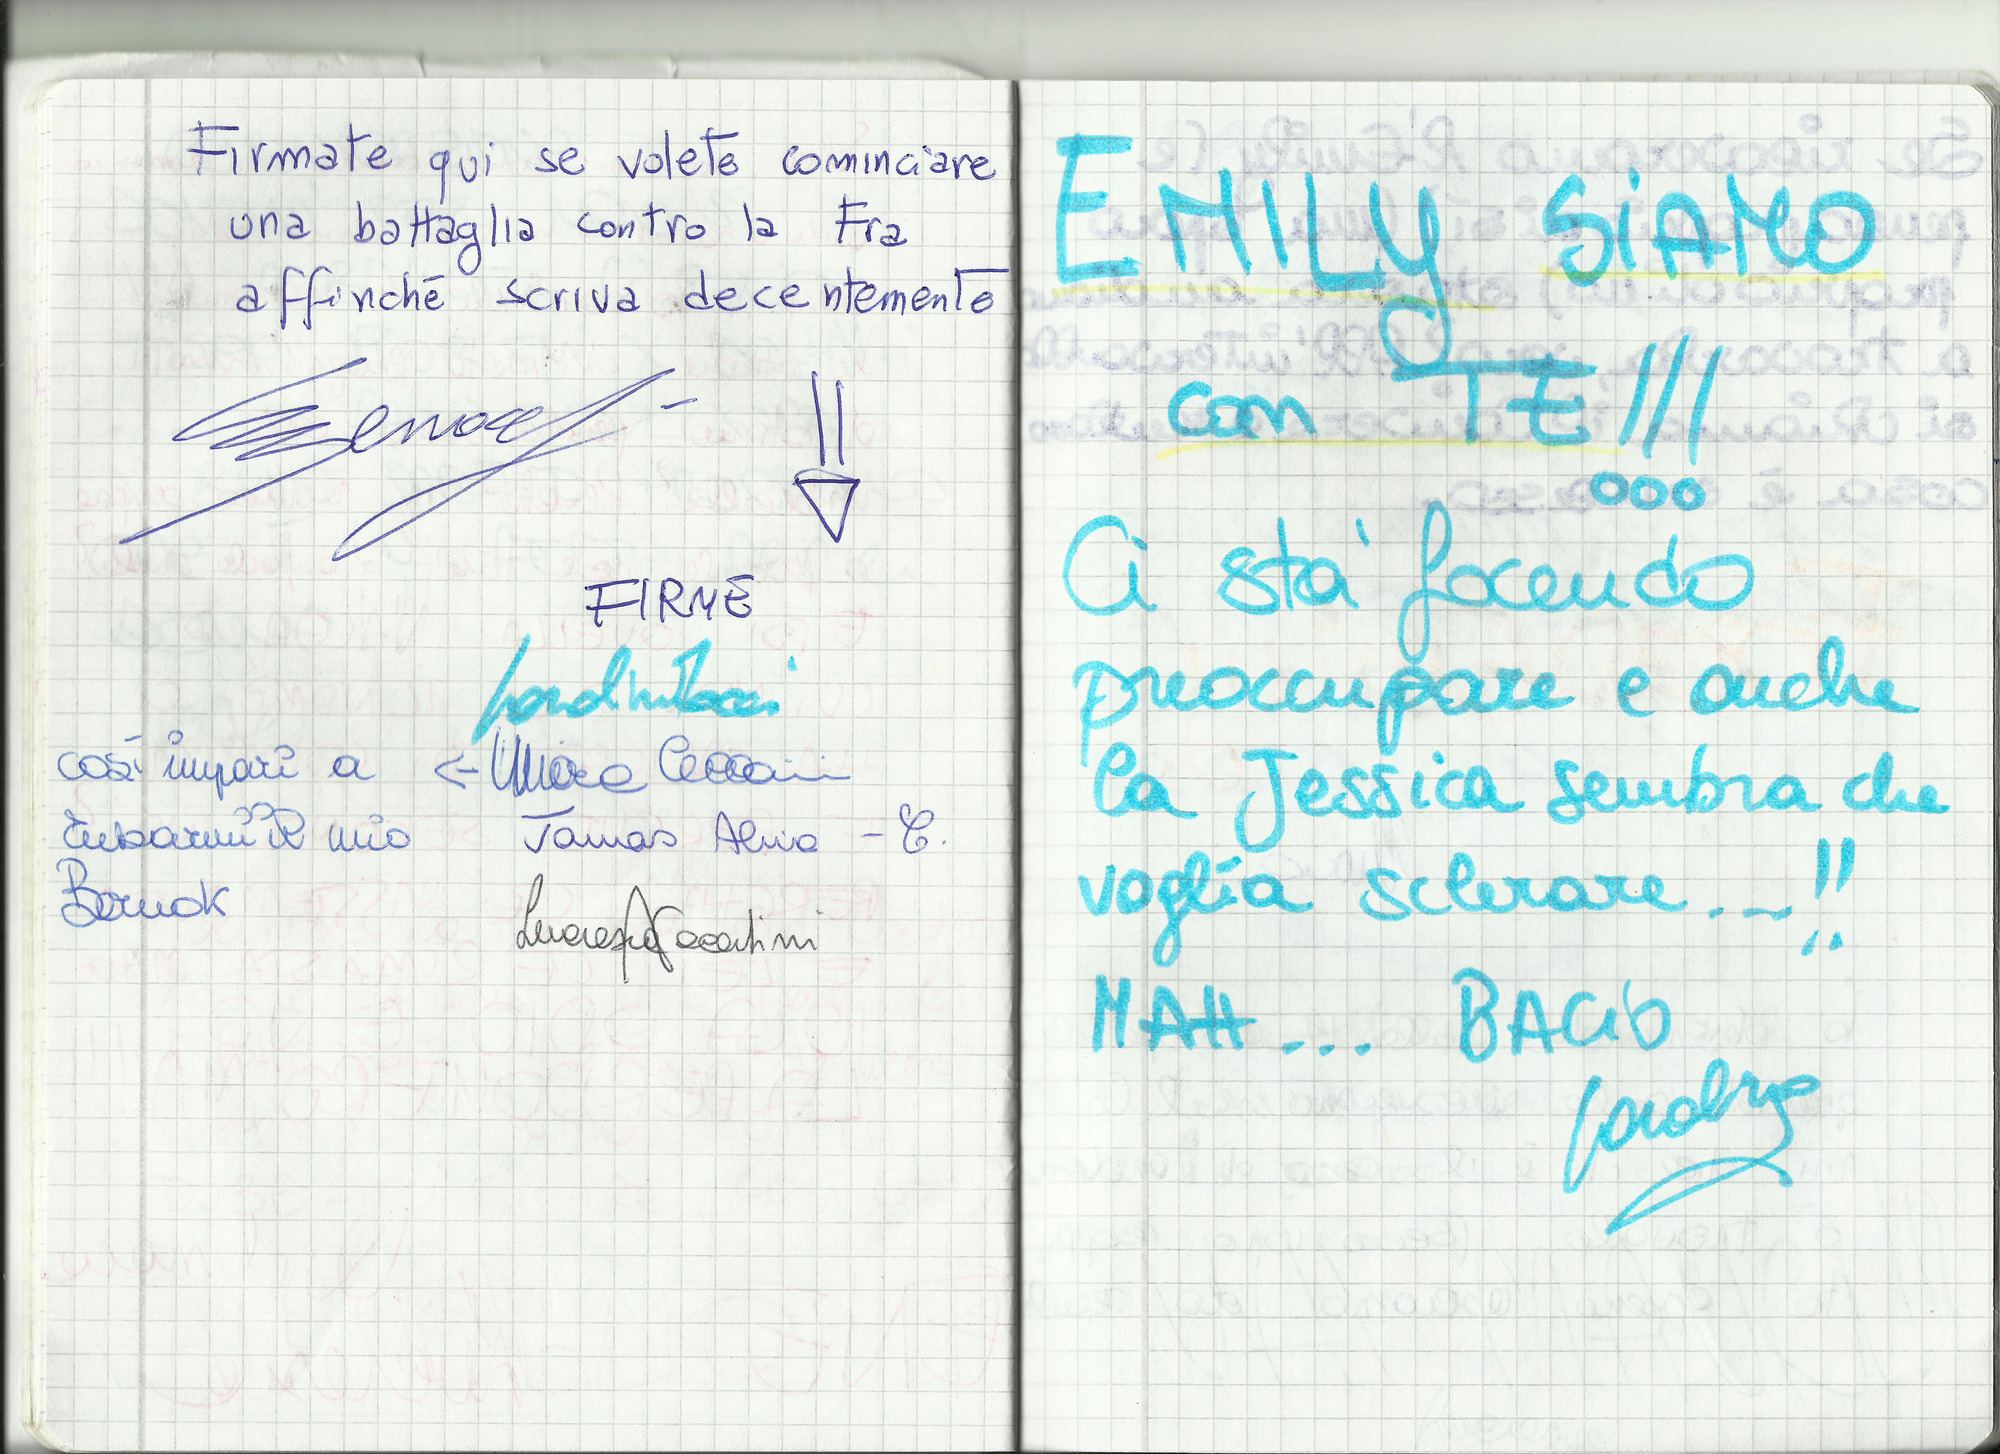 Firmate qui se volete cominciare
una battaglia contro la Fra
affinché scriva decentemente
FIRME
così impari a <-
rubarmi il mio Tomas Alvia - C.
Bernok
EMILY SiAMO
con TE!!!
Ci stà facendo
preoccupare e anche
la Jessica sembra che
voglia sclerare...!!
MAH... BACiO